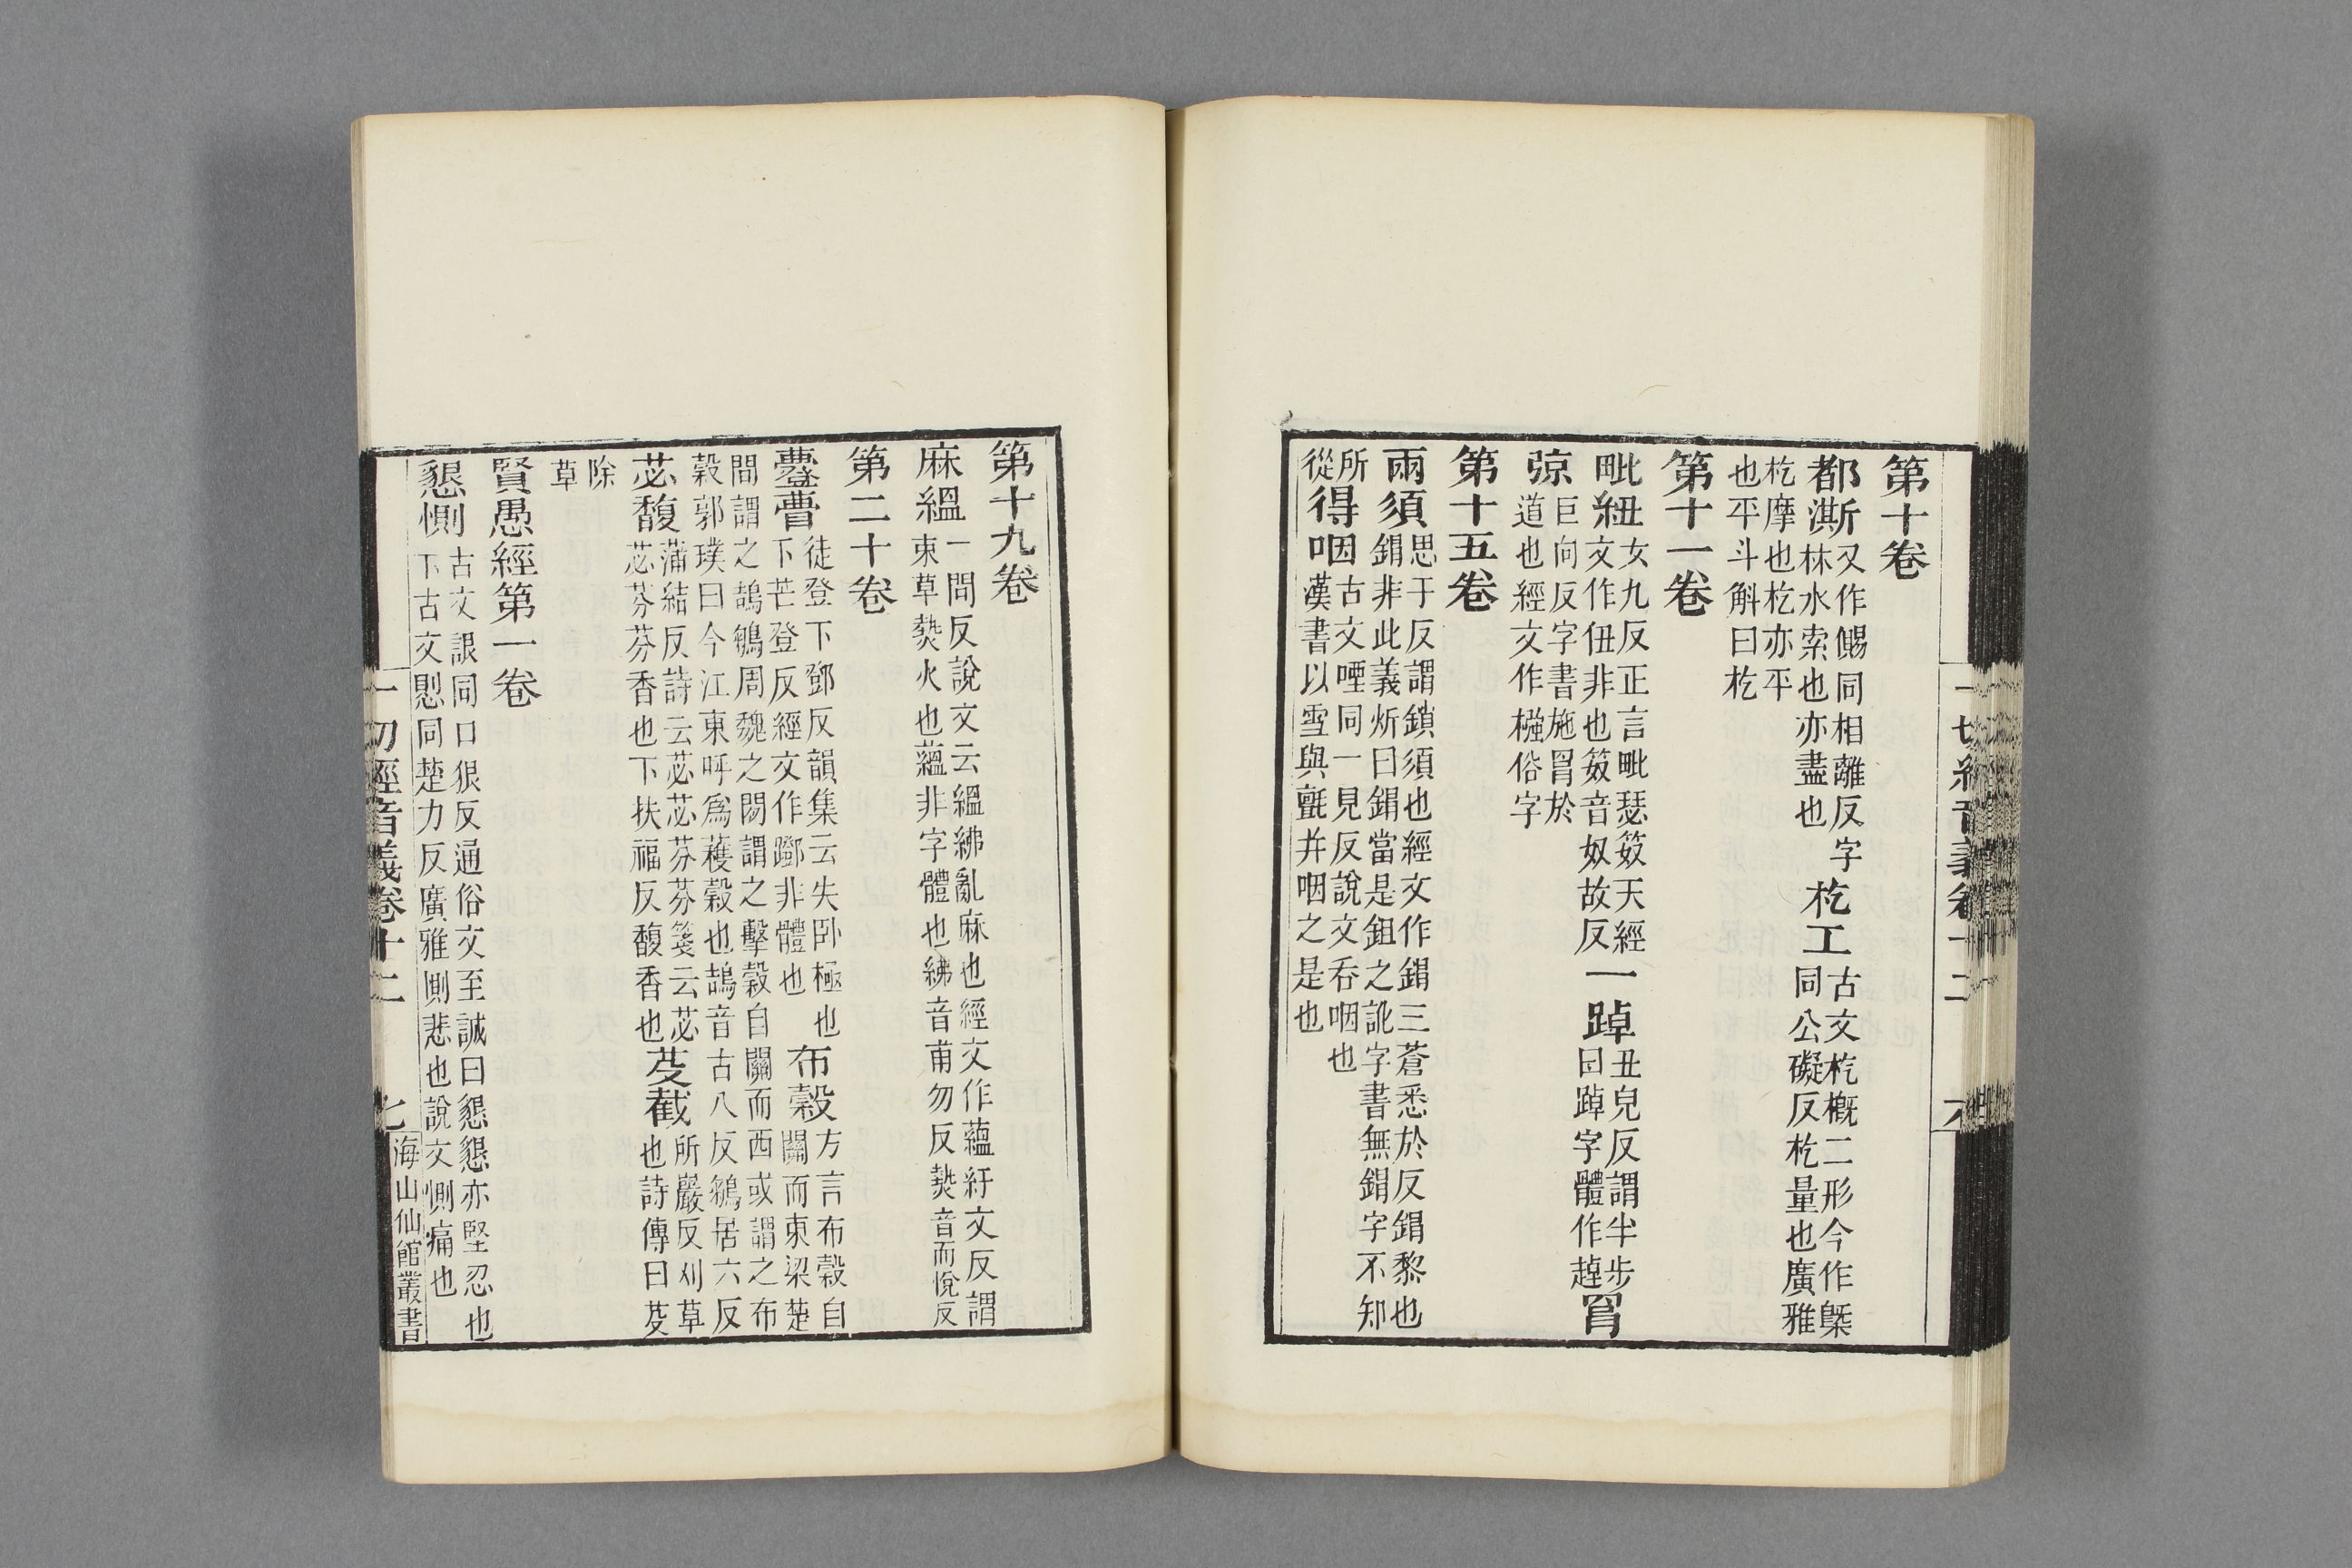 第十卷
都澌又作㒋同相離反字
林水索也亦盡也
杚工古文杚槪二形今作槩
同公礙反杚量也廣雅
杚摩也杚亦平
也平斗斛曰杚
第十一卷
毗紐女九反正言毗瑟笯天經
文作伹非也笯音奴故反
一踔丑皃反謂半步
曰踔字體作趠
罥弶巨向反字書施罥於
道也經文作摾俗字
第十五卷
兩須思于反謂鎖須也經文作鋗三蒼悉於反鋗黎也
鋗非此義炘曰鋗當是鉏之訛字書無鋗字不知
所從
得咽古文㖶同一見反說文吞咽也
漢書以雪與氈并咽之是也
一切經音義卷十二
六
第十九卷
麻縕一問反說文云縕紼亂麻也經文作蘊紆文反謂
束草爇火也蘊非字體也紼音甫勿反爇音而悅反
第二十卷
䠬瞢徒登下鄧反韻集云失卧極也
下芒登反經文作躑非體也
布穀方言布穀自
關而東梁楚
間謂之鴶鵴周魏之間謂之擊穀自關而西或謂之布
穀郭璞曰今江東呼爲穫穀也鴶音古八反鵴居六反
苾馥蒲結反詩云苾苾芬芬箋云苾
苾芬芬香也下扶福反馥香也
芟截所巖反刈草
也詩傳曰芟
除
草
賢愚經第一卷
懇惻古文詪同口很反通俗文至誠曰懇懇亦堅忍也
下古文㥶同楚力反廣雅惻悲也說文惻痛也
一切經音義卷十二
七
海山仙館叢書